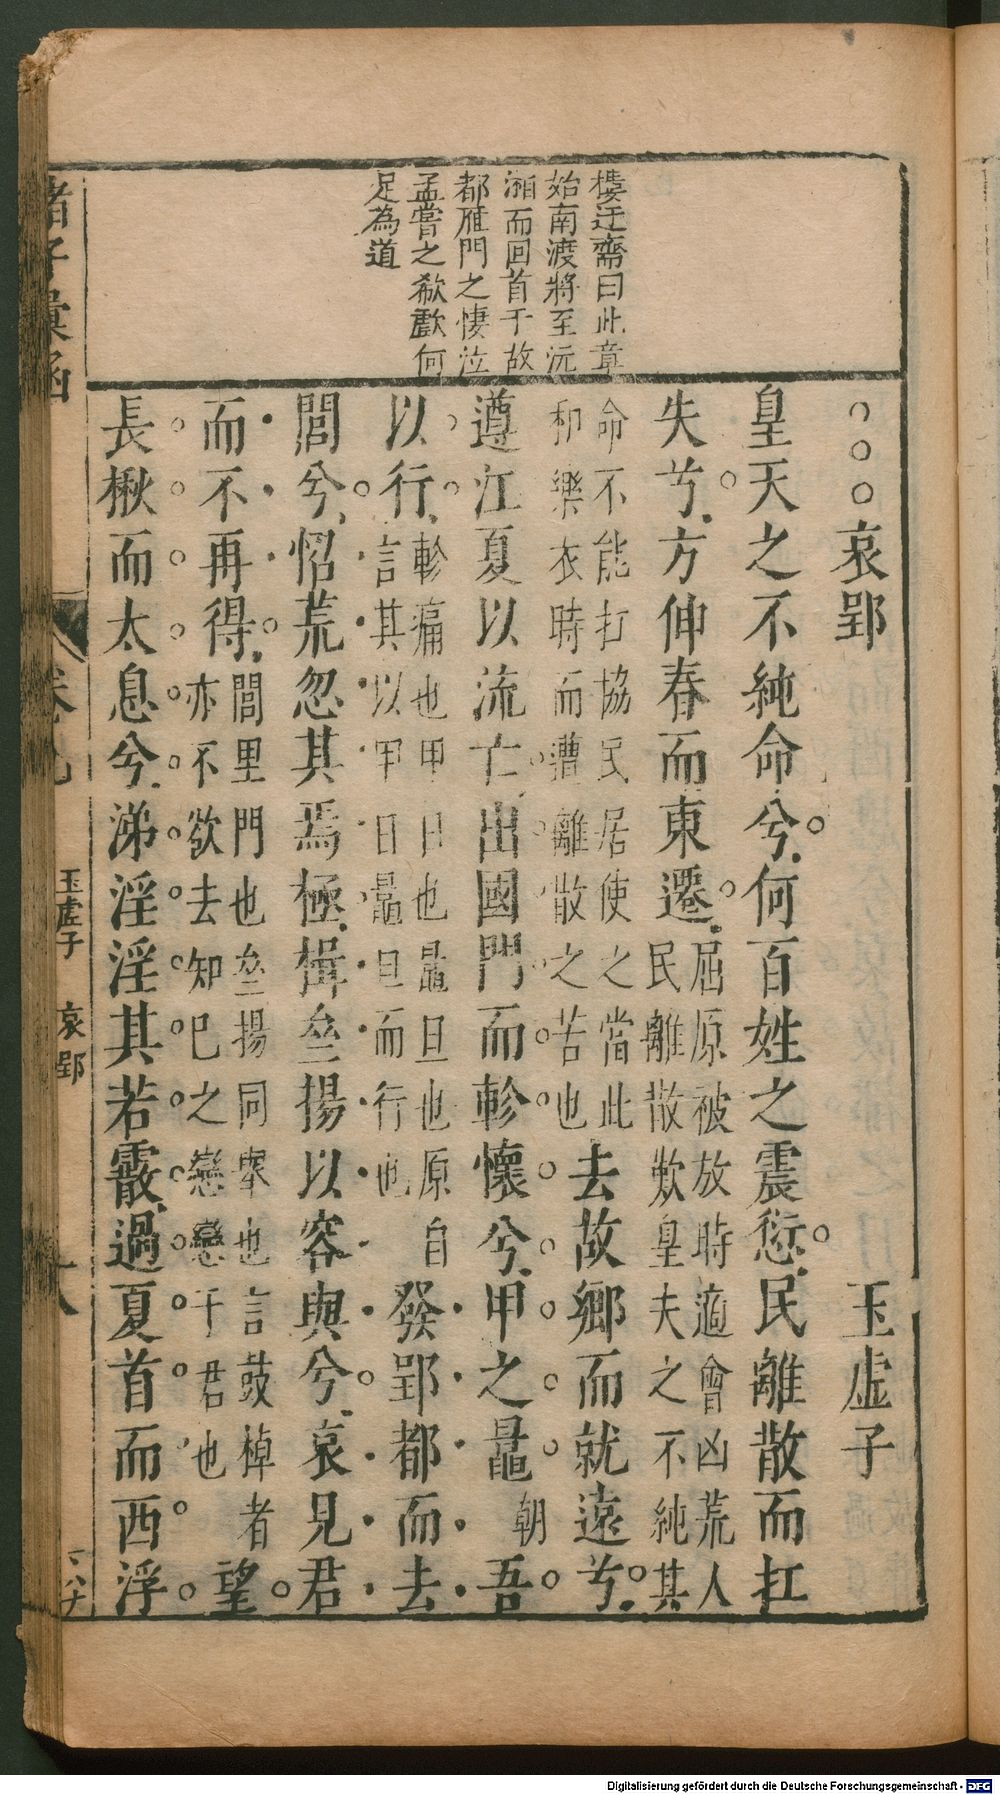 樓迂齋曰此章
始南渡將至沅
湘而回首于故
都雁門之悽泣
孟嘗之欷歔何
足為道
○○○哀郢 玉虛子
皇天之不純命兮。何百姓之震愆。民離散而扛
失兮。方仲春而東遷。屈原被放時適會凶荒人
民離散歎皇夫之不純其
命不能打協民居使之當此
和樂衣時而遭離散之苦也去故鄉而就遠兮。
遵江夏以流亡出國門而軫懷兮。甲之鼂朝吾
以行。軫痛也甲日也鼂旦也原自
言其以甲日鼂旦而行也發郢都而去
閭兮。怊荒忽其焉極。楫㕘揚以容與兮。哀見君
而不再得。閭里門也㕘揚同舉也言鼓棹者
亦不欲去知巳之戀戀于君也望
長楸而太息兮。涕淫淫其若霰。過夏首而西浮
諸子彙函 玉虛子 哀郢 十八
Digitalisierung gefördert durch die Deutsche Forschungsgemeinschaft - DFG